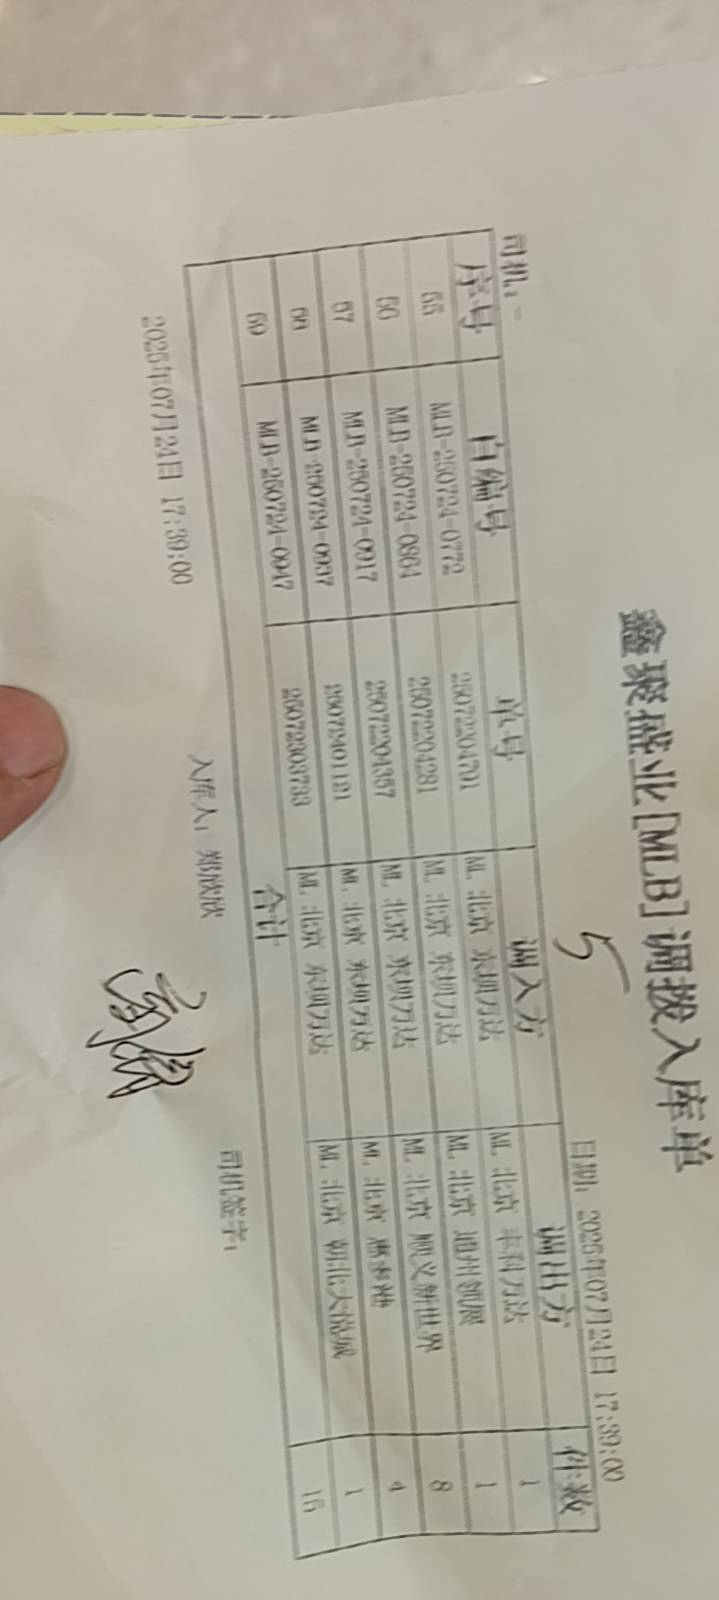 鑫聚盛业[MLB]调拨入库单
5
司机: 日期: 2025年07月24日 17:39:00
序号 自编号 单号 调入方 调出方 件数
55 MLB-250724-0772 25072204701 ML 北京 东坝万达 ML 北京 丰科万达 1
56 MLB-250724-0864 25072204281 ML 北京 东坝万达 ML 北京 通州领展 1
57 MLB-250724-0917 25072204357 ML 北京 东坝万达 ML 北京 顺义新世界 8
58 MLB-250724-0937 25072401181 ML 北京 东坝万达 ML 北京 4
59 MLB-250724-0947 25072303733 ML 北京 东坝万达 ML 北京 朝北大悦城 1
合计 15
2025年07月24日 17:39:00 入库人: 郑欣欣 司机签字: